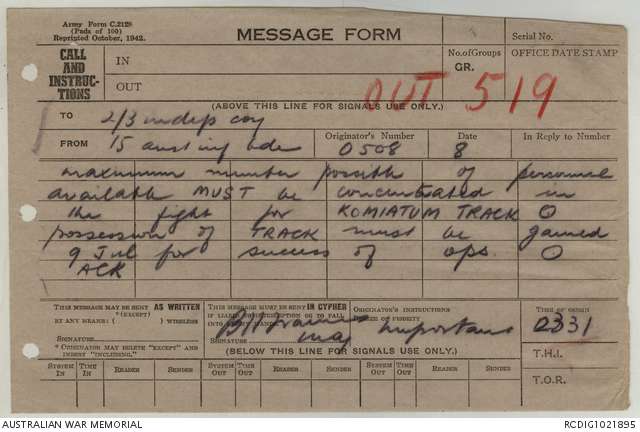 Army Form C.2128
(Pads of 100)
Reprinted October, 1942.
MESSAGE FORM
Serial No.
CALL AND INSTRUC-TIONS
IN
OUT
No. of Groups
GR.
OFFICE DATE STAMP
OUT 519
(ABOVE THIS LINE FOR SIGNALS USE ONLY.)
TO 2/3 indep coy
FROM 15 aust inf bde
Originator's Number 0508
Date 8
In Reply to Number
maximum number possible of personnel
available MUST be concentrated in
the fight for KOMIATUM TRACK O
possession of TRACK must be gained
9 Jul for success of ops O
ACK
THIS MESSAGE MAY BE SENT AS WRITTEN
(EXCEPT)
BY ANY MEANS ( ) WIRELESS
SIGNATURE
* ORIGINATOR MAY DELETE "EXCEPT" AND INSERT "INCLUDING."
THIS MESSAGE MUST BE SENT IN CYPHER
SIGNATURE
maj
ORIGINATOR'S INSTRUCTIONS
important
TIME OF ORIGIN
0331
(BELOW THIS LINE FOR SIGNALS USE ONLY.)
T.H.I.
T.O.R.
SYSTEM IN TIME IN READER SENDER SYSTEM OUT TIME OUT READER SENDER SYSTEM OUT TIME OUT READER SENDER
AUSTRALIAN WAR MEMORIAL
RCDIG1021895